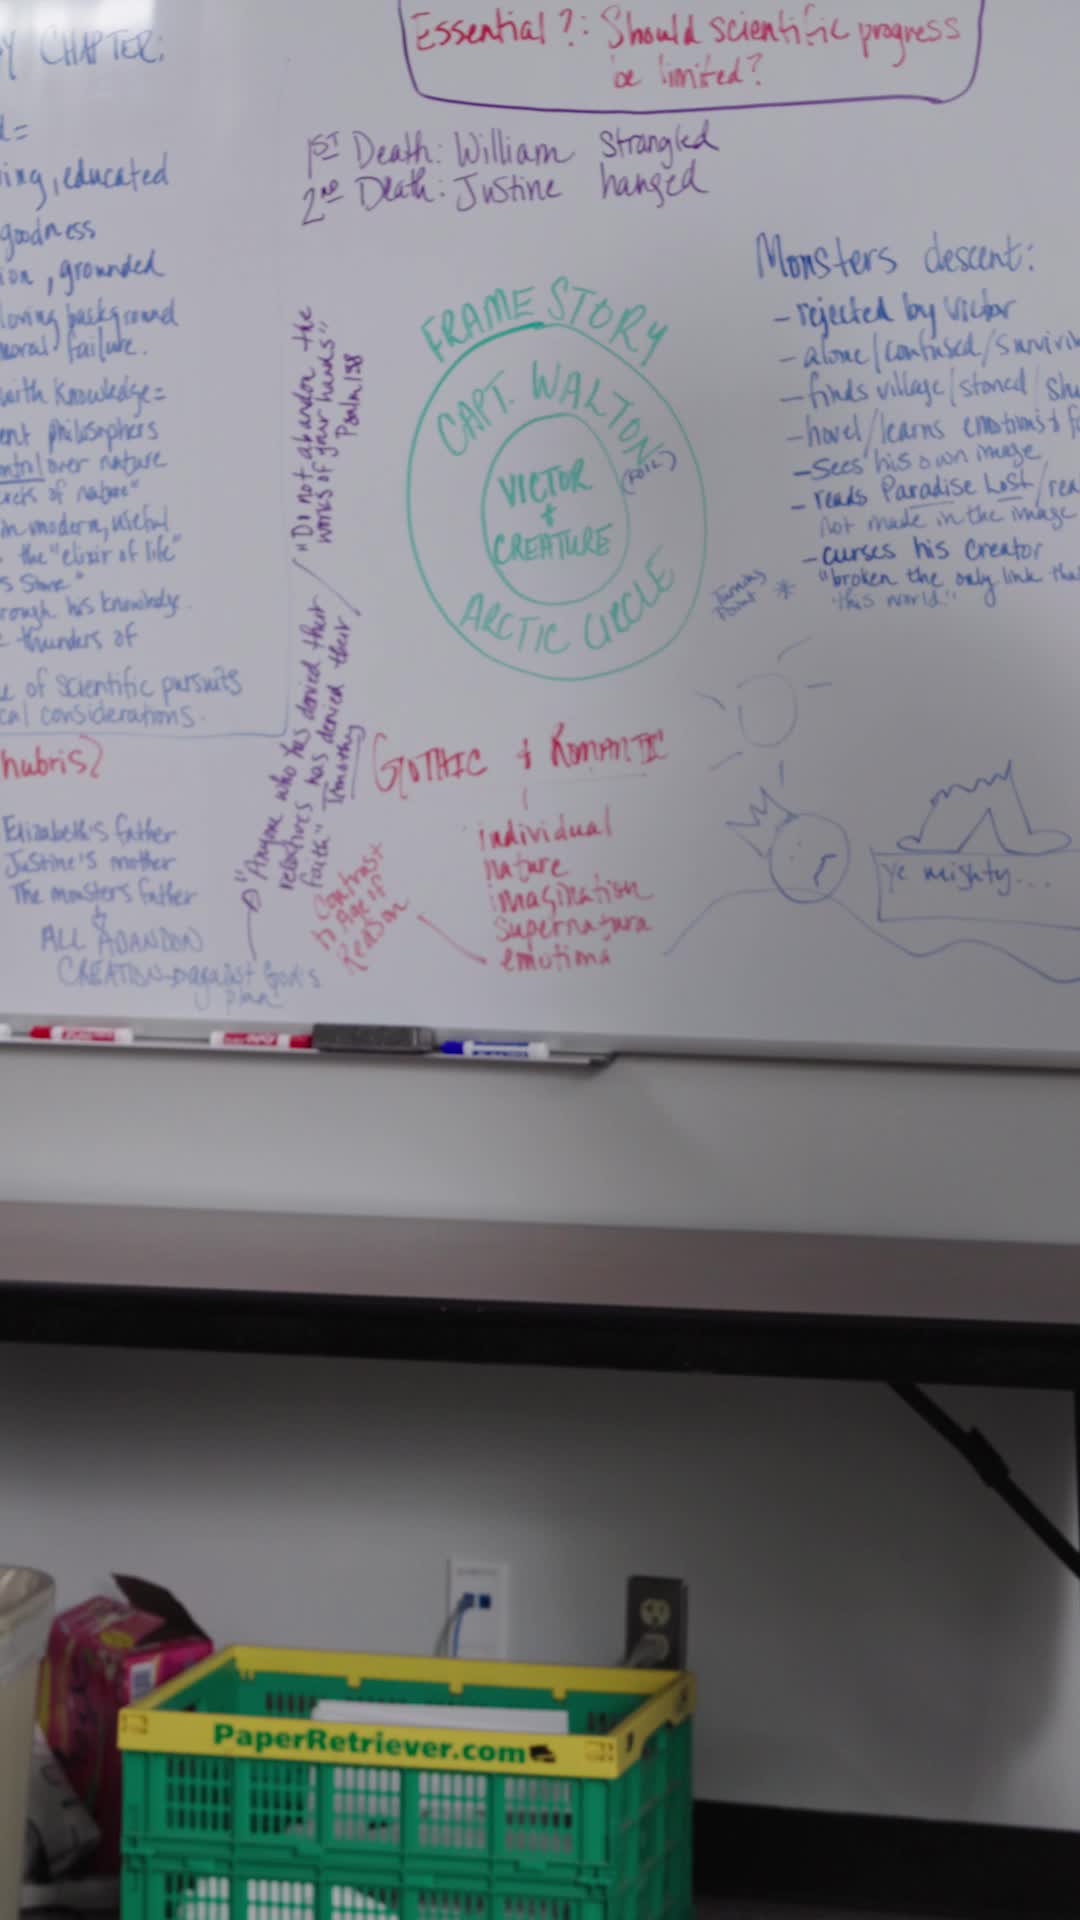 Y CHAPTER:
d=
ing, educated
goodness
ion, grounded
loving background
moral failure.
with Knowledge=
ent philosophers
ntrol over nature
of nature"
in modern, useful
the "elixir of life"
s Stone"
rough his knowledge
thunders of
of scientific pursuits
cal considerations.
hubris?
Elizabeth's father
Justine's mother
The monster's father
ALL ABANDON
CREATION-against God's
plan
Essential ?: Should scientific progress
be limited?
1ST Death: William Strangled
2nd Death: Justine hanged
"Do not abandon the
works of your hands"
Psalm 138
"Anyone who has denied their
relatives has denied their
faith" Timothy
FRAME STORY
CAPT. WALTON
(FOIL)
VICTOR
+
CREATURE
ARCTIC CIRCLE
GOTHIC & ROMANTIC
individual
nature
imagination
supernatura
emotions
Contrasx
to Age of
Reason
Monsters descent:
- rejected by Victor
- alone/confused/survivin
- finds village/stoned/sh
- hovel/learns emotions &
- sees his own image
- reads Paradise Lost/rea
not made in the image
- curses his creator
Turning
Point *
"broken the only link tha
this world."
Ye mighty...
PaperRetriever.com